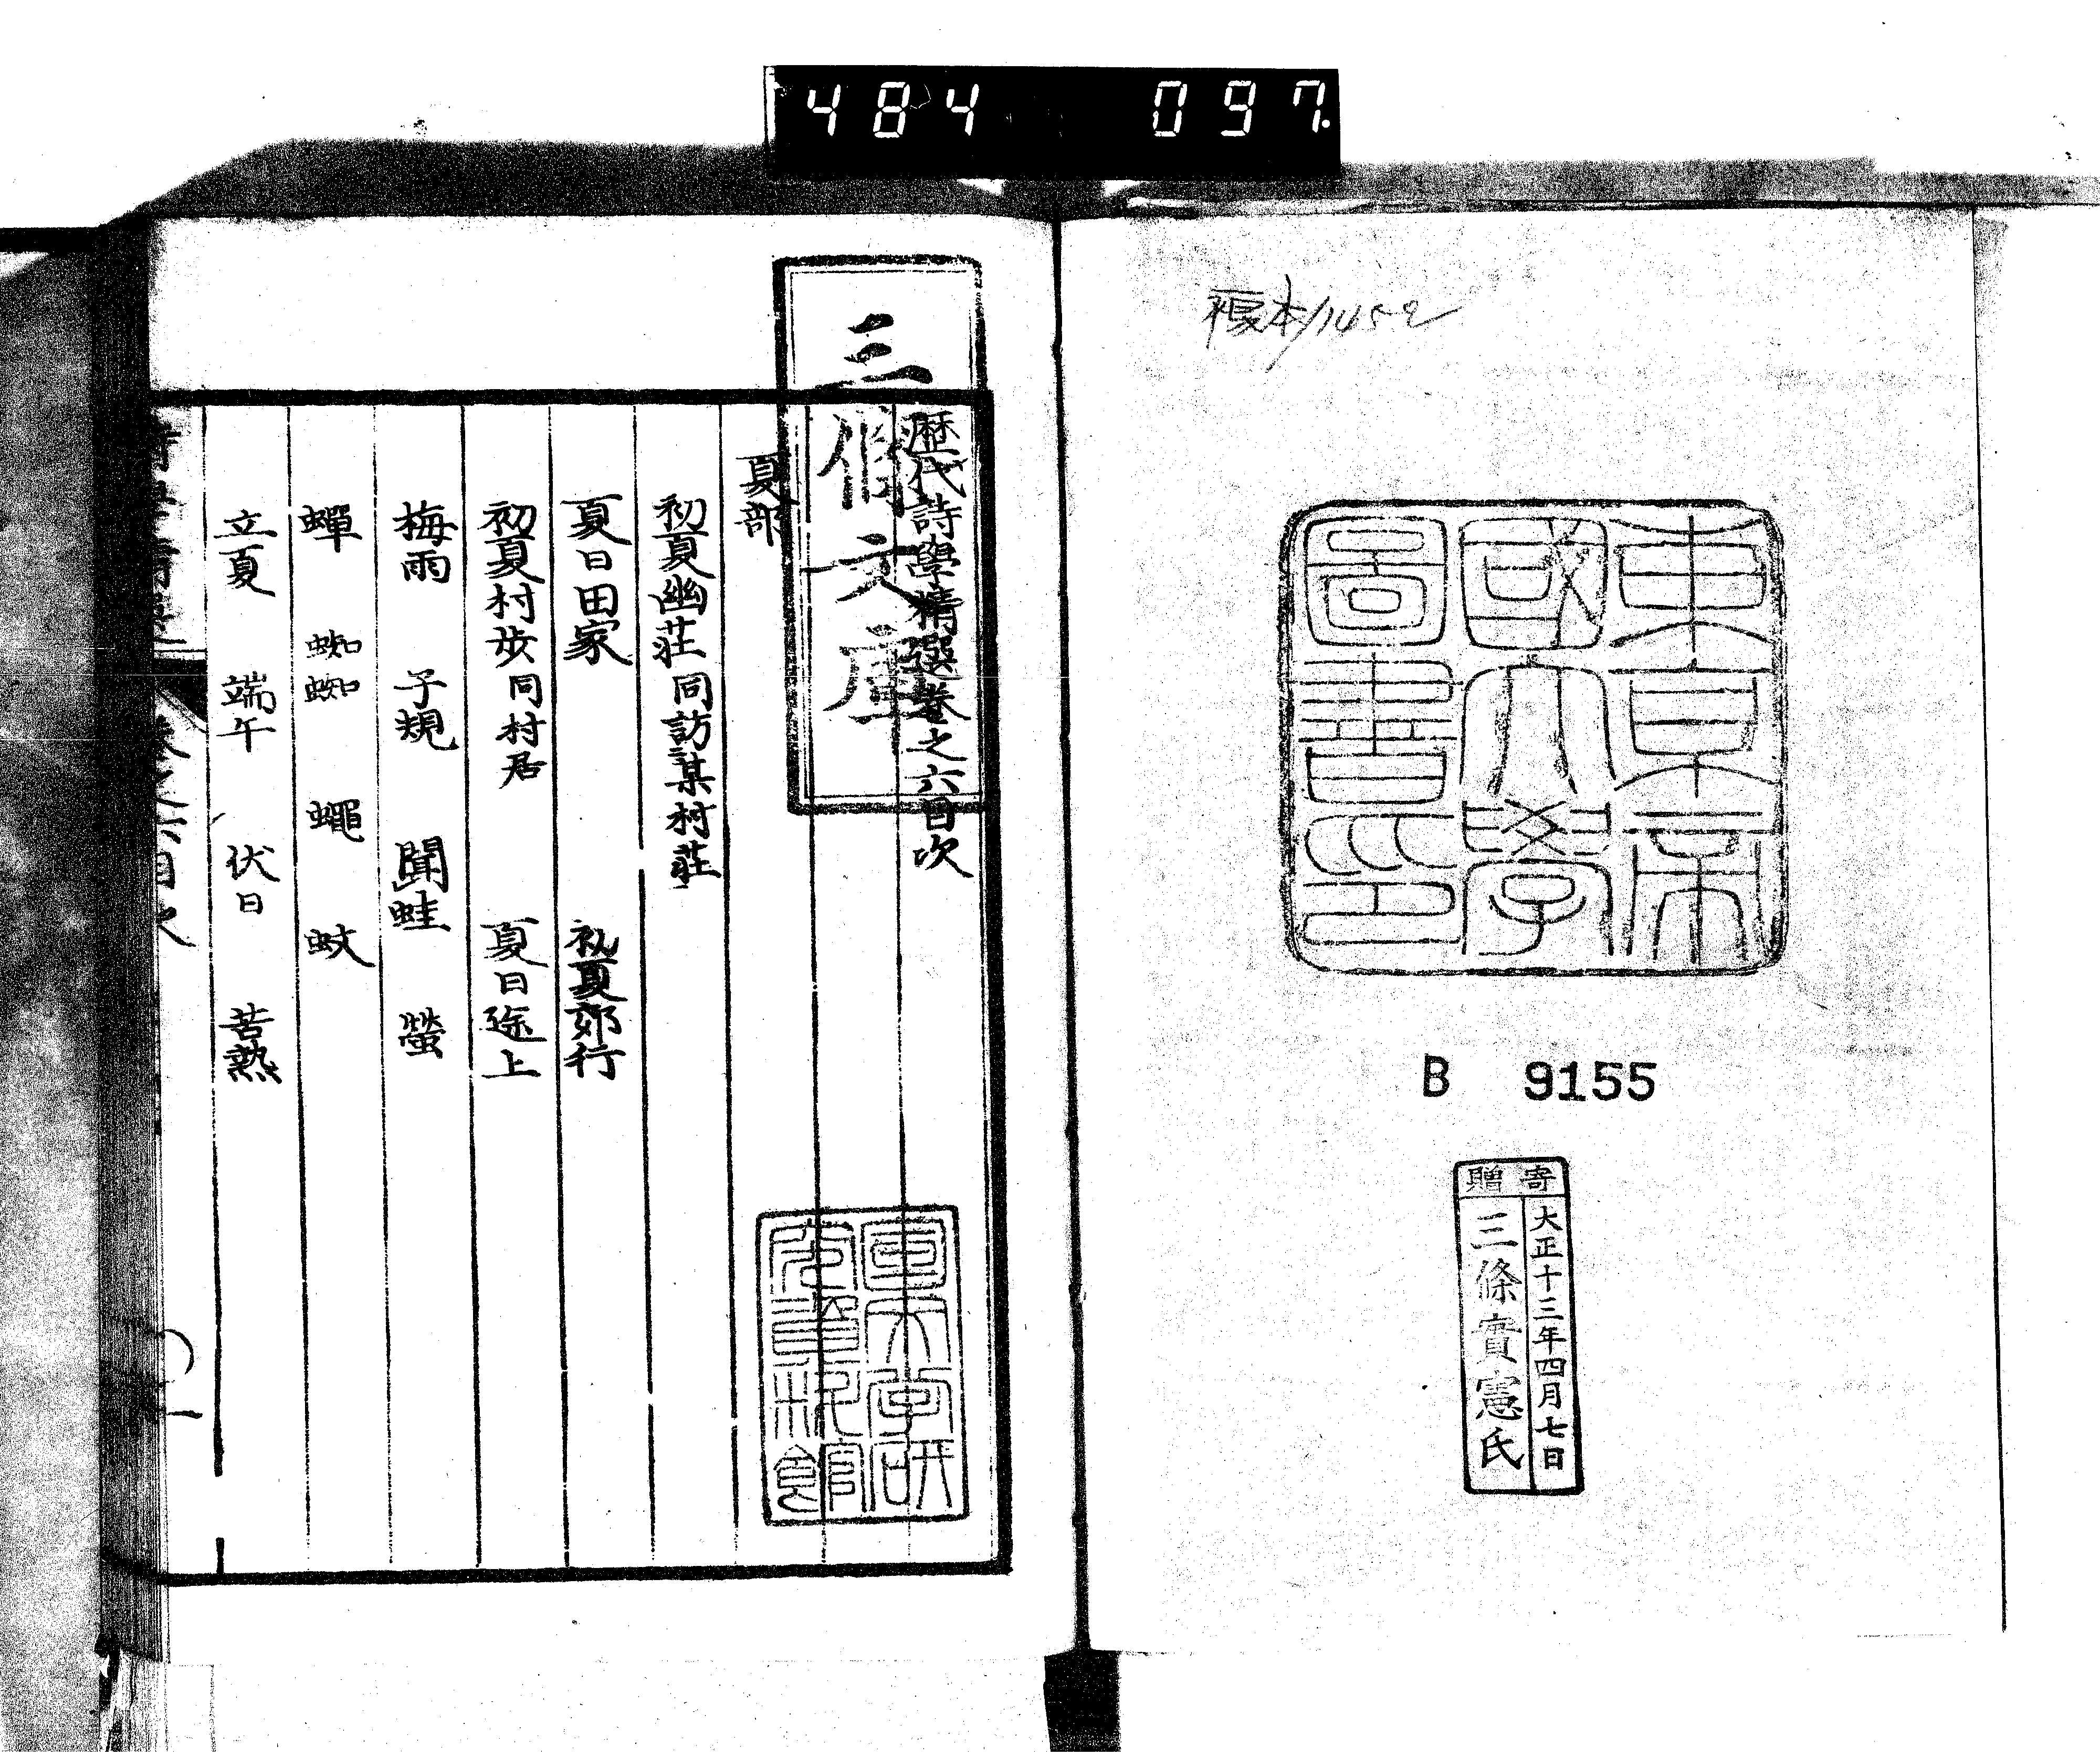 484 097.
複本/1452
東京帝
國大學
圖書印
B 9155
寄贈
大正十三年四月七日
三條實憲氏
三伯文庫
歴代詩學精選卷之六目次
夏部
初夏幽莊 同訪某村莊
夏日田家 初夏郊行
初夏村歩 同村居 夏日途上
梅雨 子規 聞蛙 螢
蟬 蜘蜘 蠅 蚊
立夏 端午 伏日 苦熱